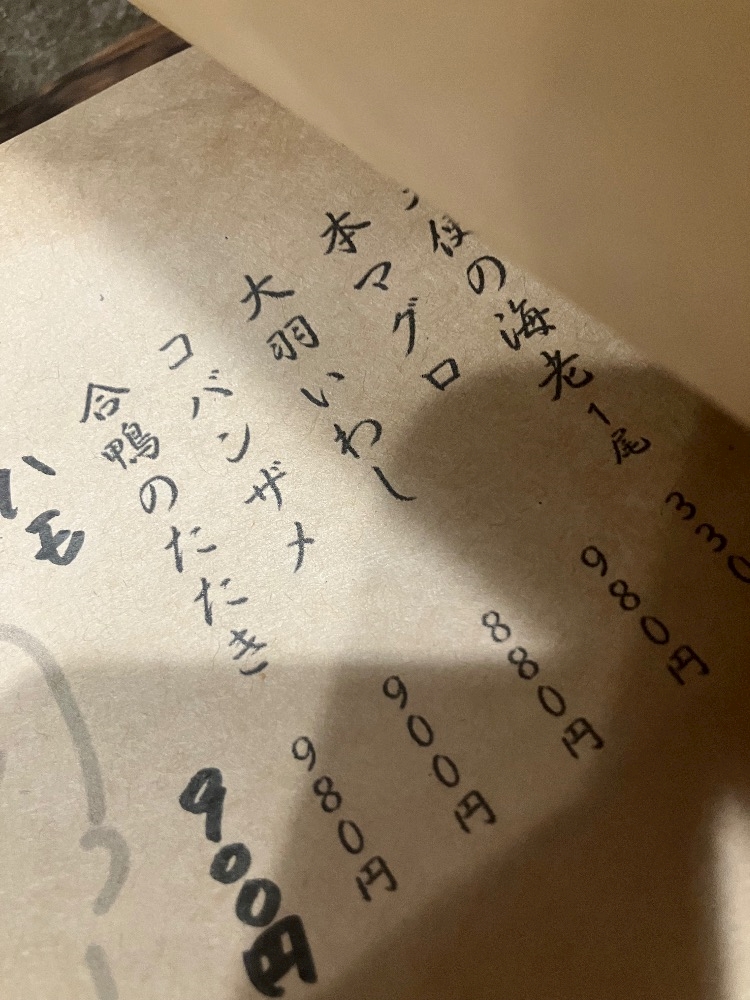 使の海老 1尾 330
本マグロ 980円
大羽いわし 880円
コバンザメ 900円
合鴨のたたき 980円
ハモ 900円